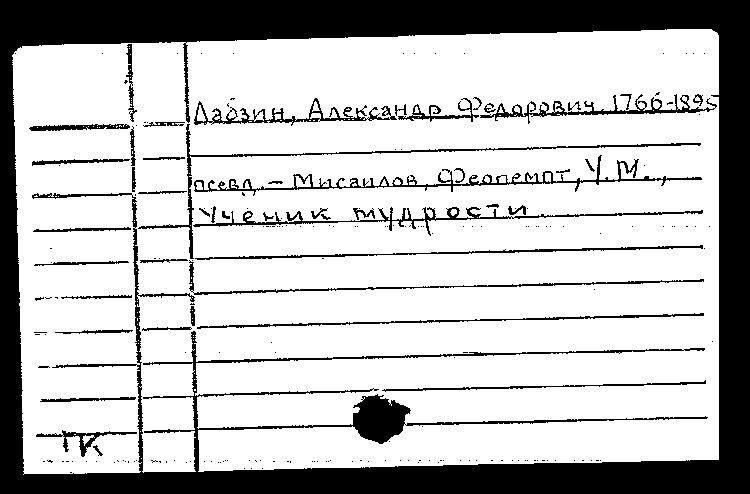 Лабзин, Александр Федорович. 1766-1895
псевд. – Мисаилов, Феопемпт, У.М.,
Ученик мудрости.
ГК